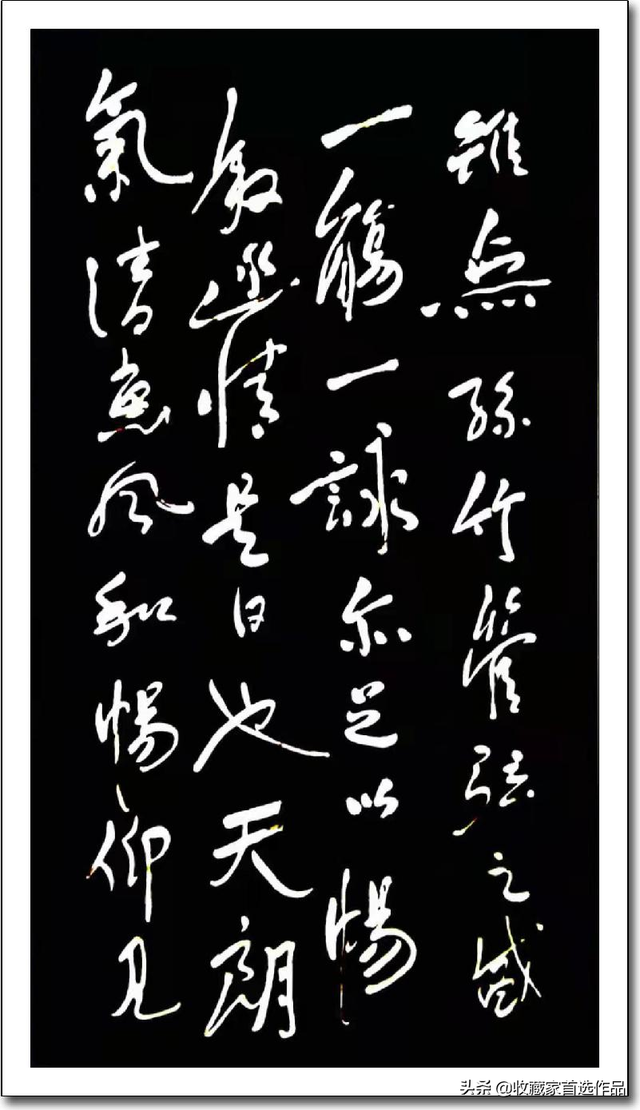 雖無絲竹管弦之盛
一觴一詠亦足以暢
敘幽情是日也天朗
氣清惠風和暢仰見
头条 @收藏家首选作品